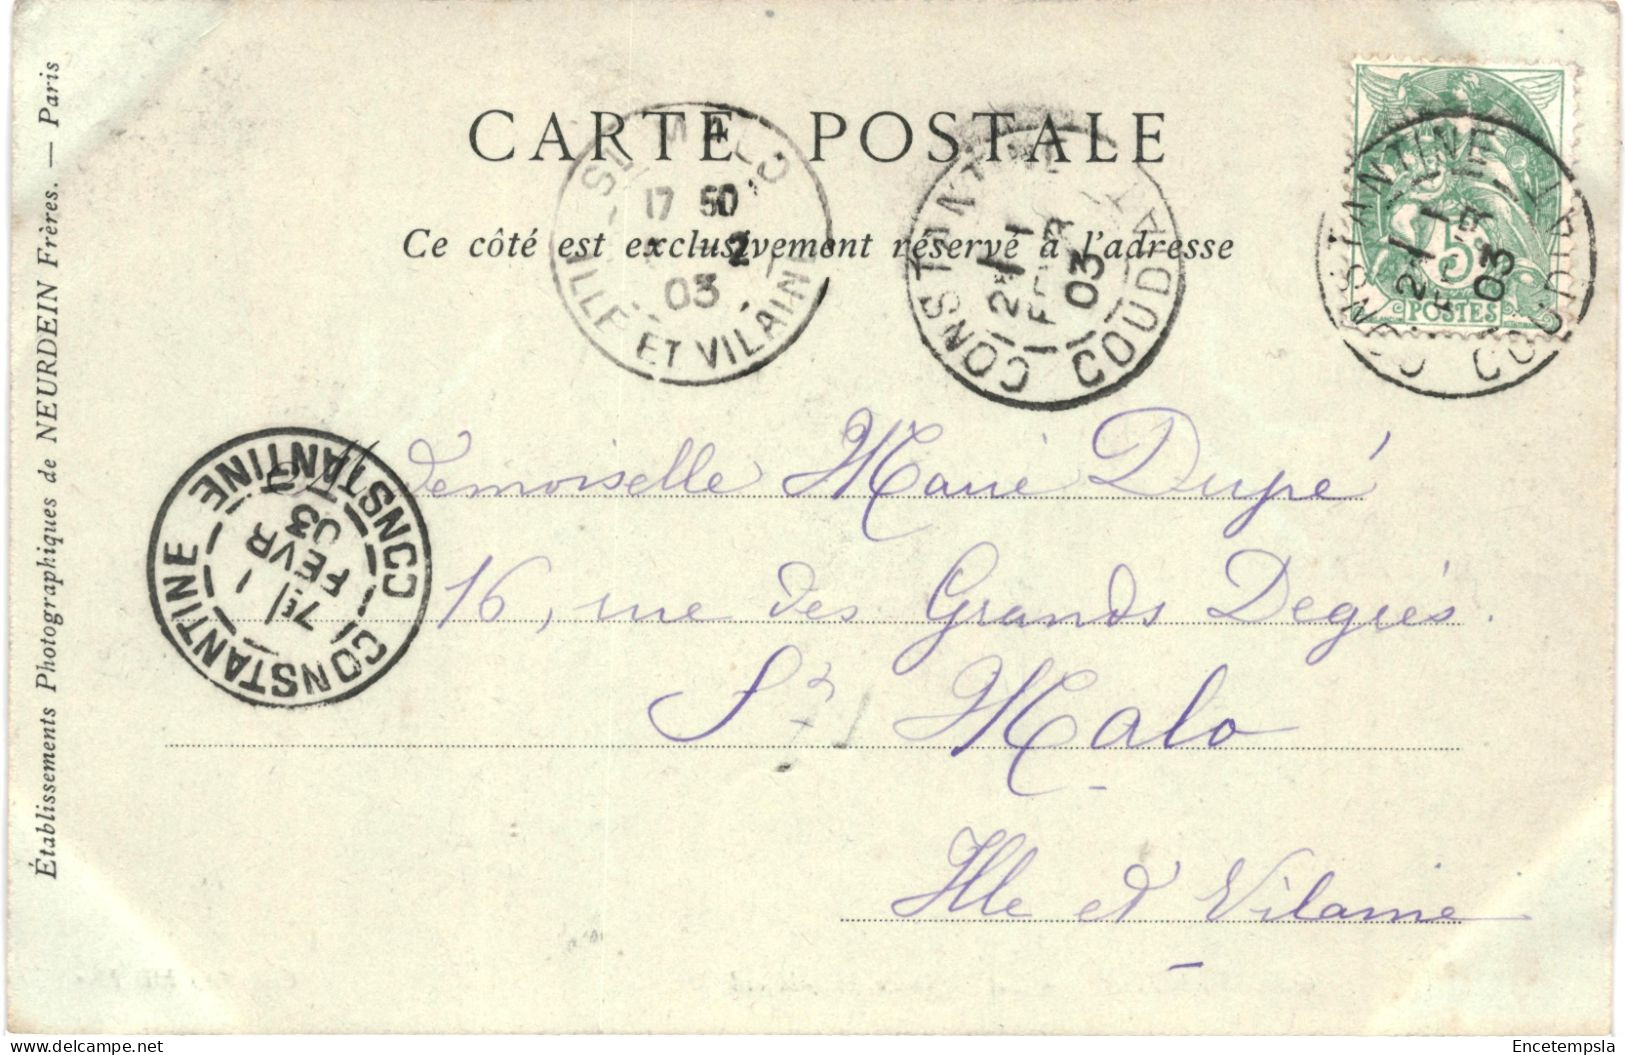 CARTE POSTALE
Ce côté est exclusivement réservé à l'adresse
ILLE ET VILAINE
17 50
2
03
CONSTANTINE
COUDIAT
12 1
FEVR
03
CONSTANTINE
COUDIAT
2 1
03
5
POSTES
CONSTANTINE
CONSTANTINE
7 1
FEVR
03
Mademoiselle Marie Dupé
16, rue des Grands Degrés.
St Malo
Ille et Vilaine
Établissements Photographiques de NEURDEIN Frères. — Paris
Encetempsla